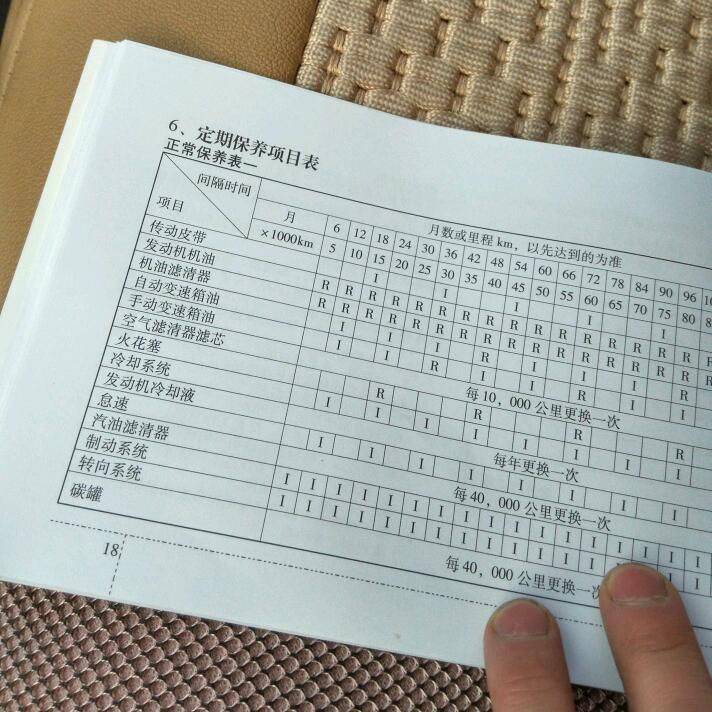 6、定期保养项目表
正常保养表一
间隔时间
项目
月数或里程 km，以先达到的为准
月 6 12 18 24 30 36 42 48 54 60 66 72 78 84 90 96
×1000km 5 10 15 20 25 30 35 40 45 50 55 60 65 70 75 80
传动皮带 I I I I I
发动机机油 R R R R R R R R R R R R R R R R
机油滤清器 R R R R R R R R R R R R R R R R
自动变速箱油 I I I R I I I R
手动变速箱油 I I R I I R I I
空气滤清器滤芯 每10，000 公里更换一次
火花塞 R R R R
冷却系统 I I I I I I I I
发动机冷却液 每年更换一次
怠速 I I I I I I I I
汽油滤清器 每 40，000 公里更换一次
制动系统 I I I I I I I I I I I I I I I I
转向系统 I I I I I I I I I I I I I I I I
碳罐 每 40，000 公里更换一次
18